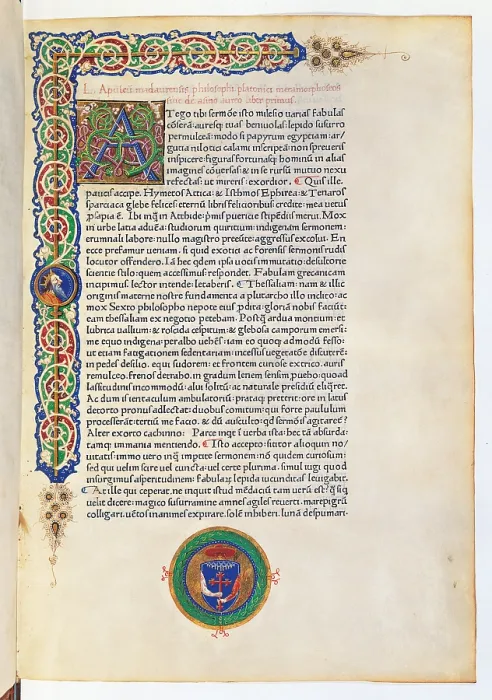 L. Apuleii madaurensis philosophi platonici metamorphoseos
siue de asino aureo liber primus.
A Tego tibi sermōe isto milesio uarias fabulas
cōserā: auresq; tuas beniuolas lepido susurro
permulceā: modo si papyrum egyptiam ar/
gutia nilotici calami inscriptā non spreueris
inspicere: figuras fortunasq; hominū in alias
imagines cōuersas: & in se rursū mutuo nexu
refectas: ut mireris: exordior. Quis ille.
paucis accipe. Hymetos Attica: & Isthmos Ephirea: & Tenaros
spartiaca glebe felices eternū libris felicioribus credite: mea uetus
psapia ē. Ibi linguā Atthide pmis pueritie stipēdiis merui. Mox
in urbe latia aduēa: studiorum quiritium: indigenam sermonem:
erumnali labore: nullo magistro preeūte: aggressus excolui. En
ecce prefamur ueniam. si quid exotici ac forensis sermonis rudis
locutor offendero. Iā hec qdem ipsa uocis immutatio: desultorie
scientie stilo: quem accessimus: respondet. Fabulam grecanicam
incipimus lector intende: letaberis. Thessaliam: nam & illic
originis materne nostre fundamenta a plutarcho illo inclito: ac
mox Sexto philosopho nepote eius pdita: gloriā nobis faciūt:
eam thessaliam ex negotio petebam. Postq ardua montium: et
lubrica uallium: & roscida cespitum: & glebosa camporum emersi:
me equo indigena: peralbo uehēs: iam eo quoq; admodū fesso:
ut etiam fatigationem sedentariam: incessus uegetatōe discuterē:
in pedes desilio. equi sudorem: et frontem curiose extrico. auris
remulceo. frenos detraho. in gradum lenem sensim pueho: quoad
lassitudinis incommodū: alui solitū: ac naturale presidiū eliqret.
Ac dum is ientaculum ambulatoriū: prataq; preterit: ore in latus
detorto pronus adfectat: duobus comitum: qui forte paululum
processerāt: tertiū me facio. & dū ausculto: qd sermōis agitaret?
Alter exorto cachinno: Parce inqt ī uerba ista: hec tā absurda:
tamq; immania mentiendo. Isto accepto: sititor alioquin no/
uitatis: immo uero inq impertite sermonem: nō quidem curiosum:
sed qui uelim scire uel cuncta: uel certe plurima. simul iugi quod
insurgimus aspritudinem: fabulaꝝ lepida iucunditas leuigabit.
At ille qui ceperat, ne inquit istud mēdaciū tam uerū est: q̄ siq
uelit dicere: magico susurramine amnes agiles reuerti. mare pigrū
colligari. uētos inanimes expirare. solē inhiberi. lunā despumari.